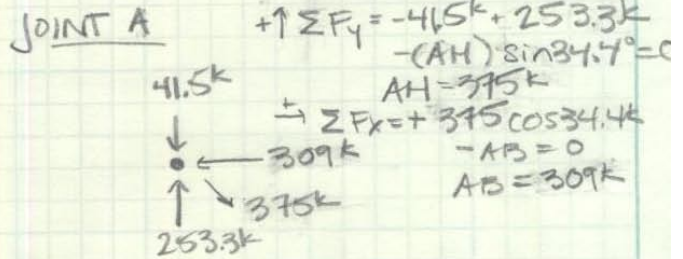 JOINT A
+↑ ΣFy = -41.5k + 253.3k
-(AH) sin34.4° = 0
AH = 375k
+→ ΣFx = + 375 cos34.4k
- AB = 0
AB = 309k
41.5k
309k
375k
253.3k